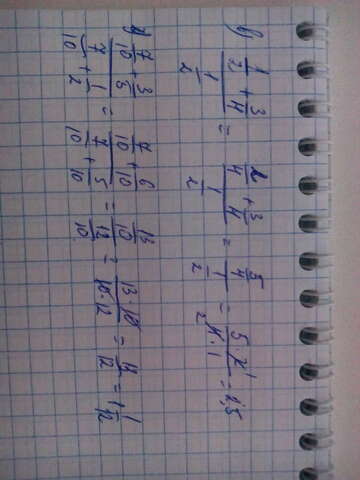 в) (1/2 + 3/4)/(1/2) = (2/4 + 3/4)/(1/2) = (5/4)/(1/2) = (5·2)/(4·1) = 2,5
(7/10 + 3/5)/(7/10 + 1/2) = (7/10 + 6/10)/(7/10 + 5/10) = (13/10)/(12/10) = (13·10)/(10·12) = 13/12 = 1 1/12